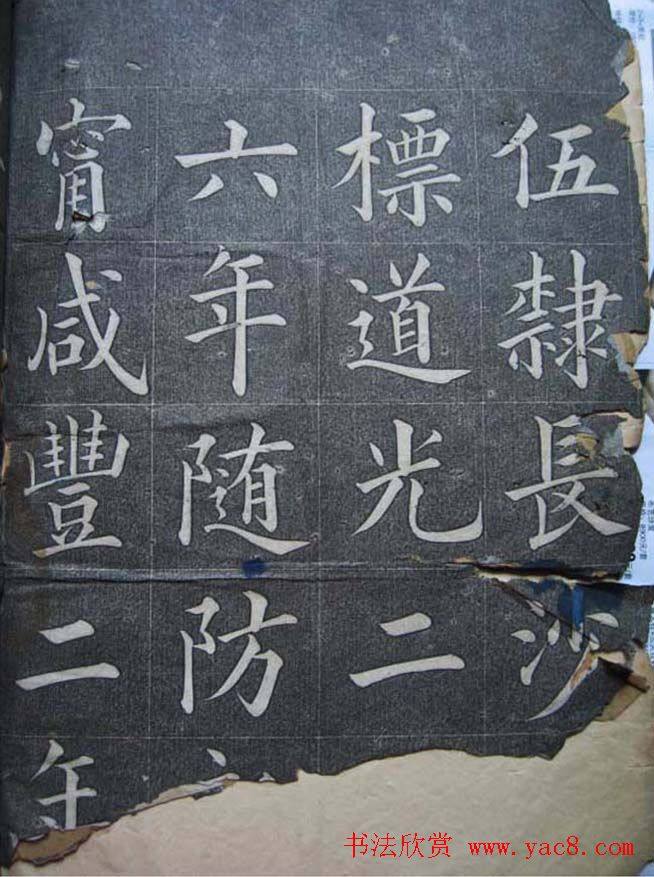 伍隸長沙
標道光二
六年随防
甯咸豐二年
书法欣赏 www.yac8.com